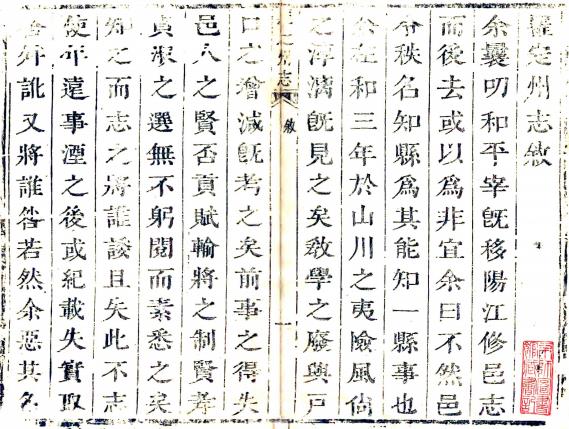 羅定州志敘
余曩叨和平宰旣移陽江修邑志
而後去或以為非宜余曰不然邑
令秩名知縣為其能知一縣事也
余在和三年於山川之夷險風尚
之淳漓旣見之矣敎學之廢與戶
州志
敘
一
口之增減旣考之矣前事之得失
邑人之賢否貢賦輸將之制賢孝
貞淑之選無不躬閱而素悉之矣
知之而志之將誰諉且失此不志
使年遠事湮之後或紀載失實取
舛訛又將誰咎若然余惡其名